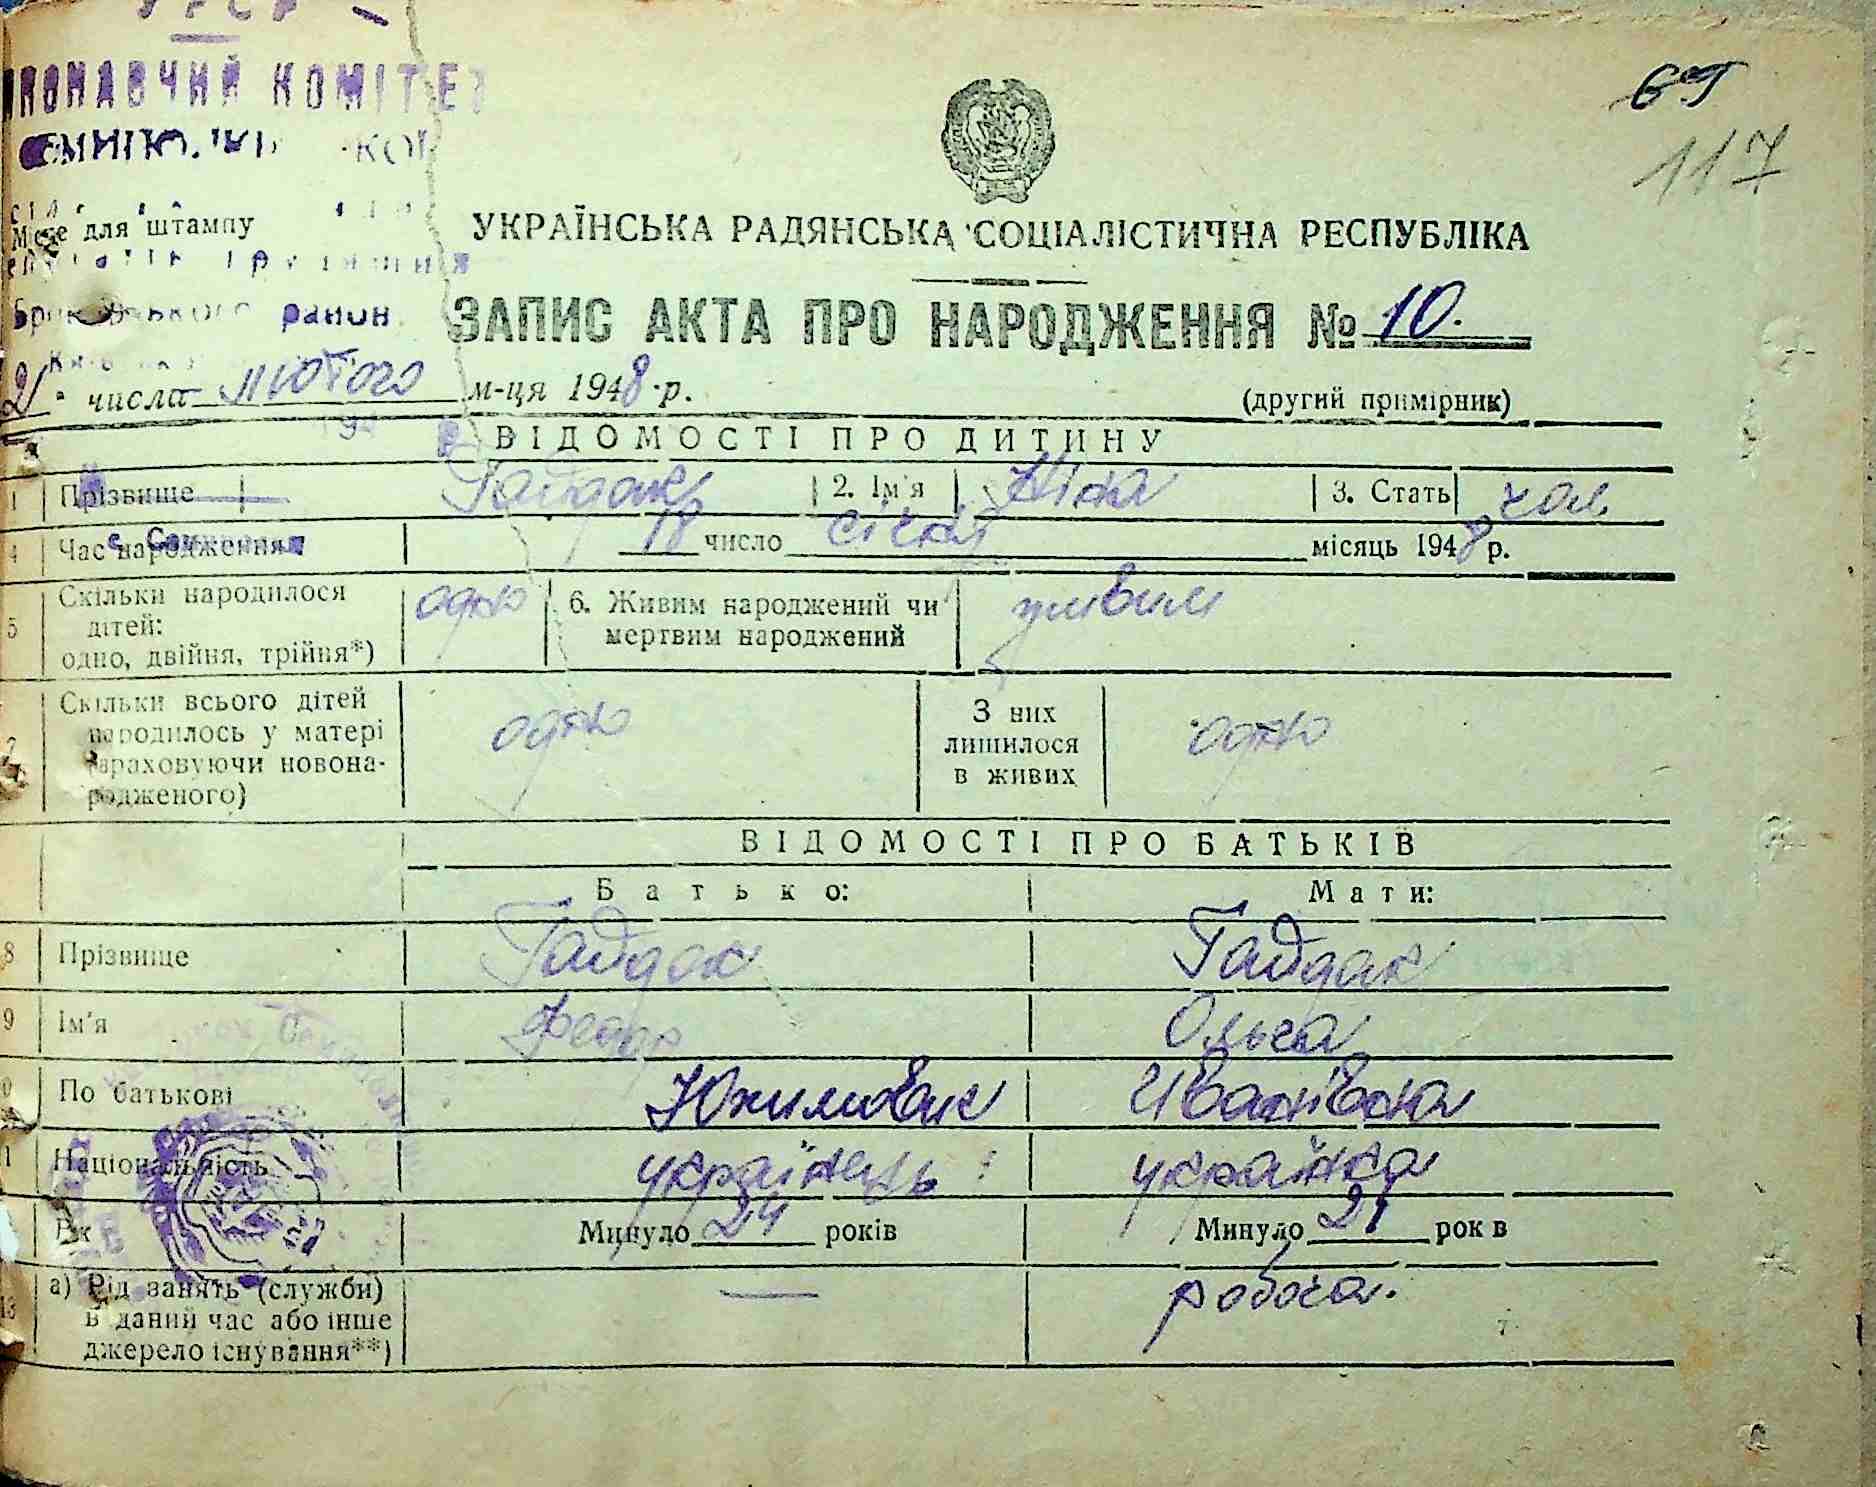 УРСР
ВИКОНАВЧИЙ КОМІТЕТ
Місце для штампу
район
69
117
УКРАЇНСЬКА РАДЯНСЬКА СОЦІАЛІСТИЧНА РЕСПУБЛІКА
ЗАПИС АКТА ПРО НАРОДЖЕННЯ № 10.
21 числа лютого м-ця 1948 р.
(другий примірник)
ВІДОМОСТІ ПРО ДИТИНУ
1 Прізвище Гайдак 2. Ім'я Ніна 3. Стать чол
4 Час народження 18 число січня місяць 1948 р.
5 Скільки народилося дітей: одно, двійня, трійня*) одно 6. Живим народжений чи мертвим народжений живим
7 Скільки всього дітей народилось у матері (враховуючи новонародженого) одно З них лишилося в живих одно
ВІДОМОСТІ ПРО БАТЬКІВ
Батько: Мати:
8 Прізвище Гайдак Гайдак
9 Ім'я Федор Ольга
По батькові Юхимович Иванівна
Національність українець українка
Вік Минуло 24 років Минуло 21 років
13 а) Рід занять (служби) в даний час або інше джерело існування**) — робоча.